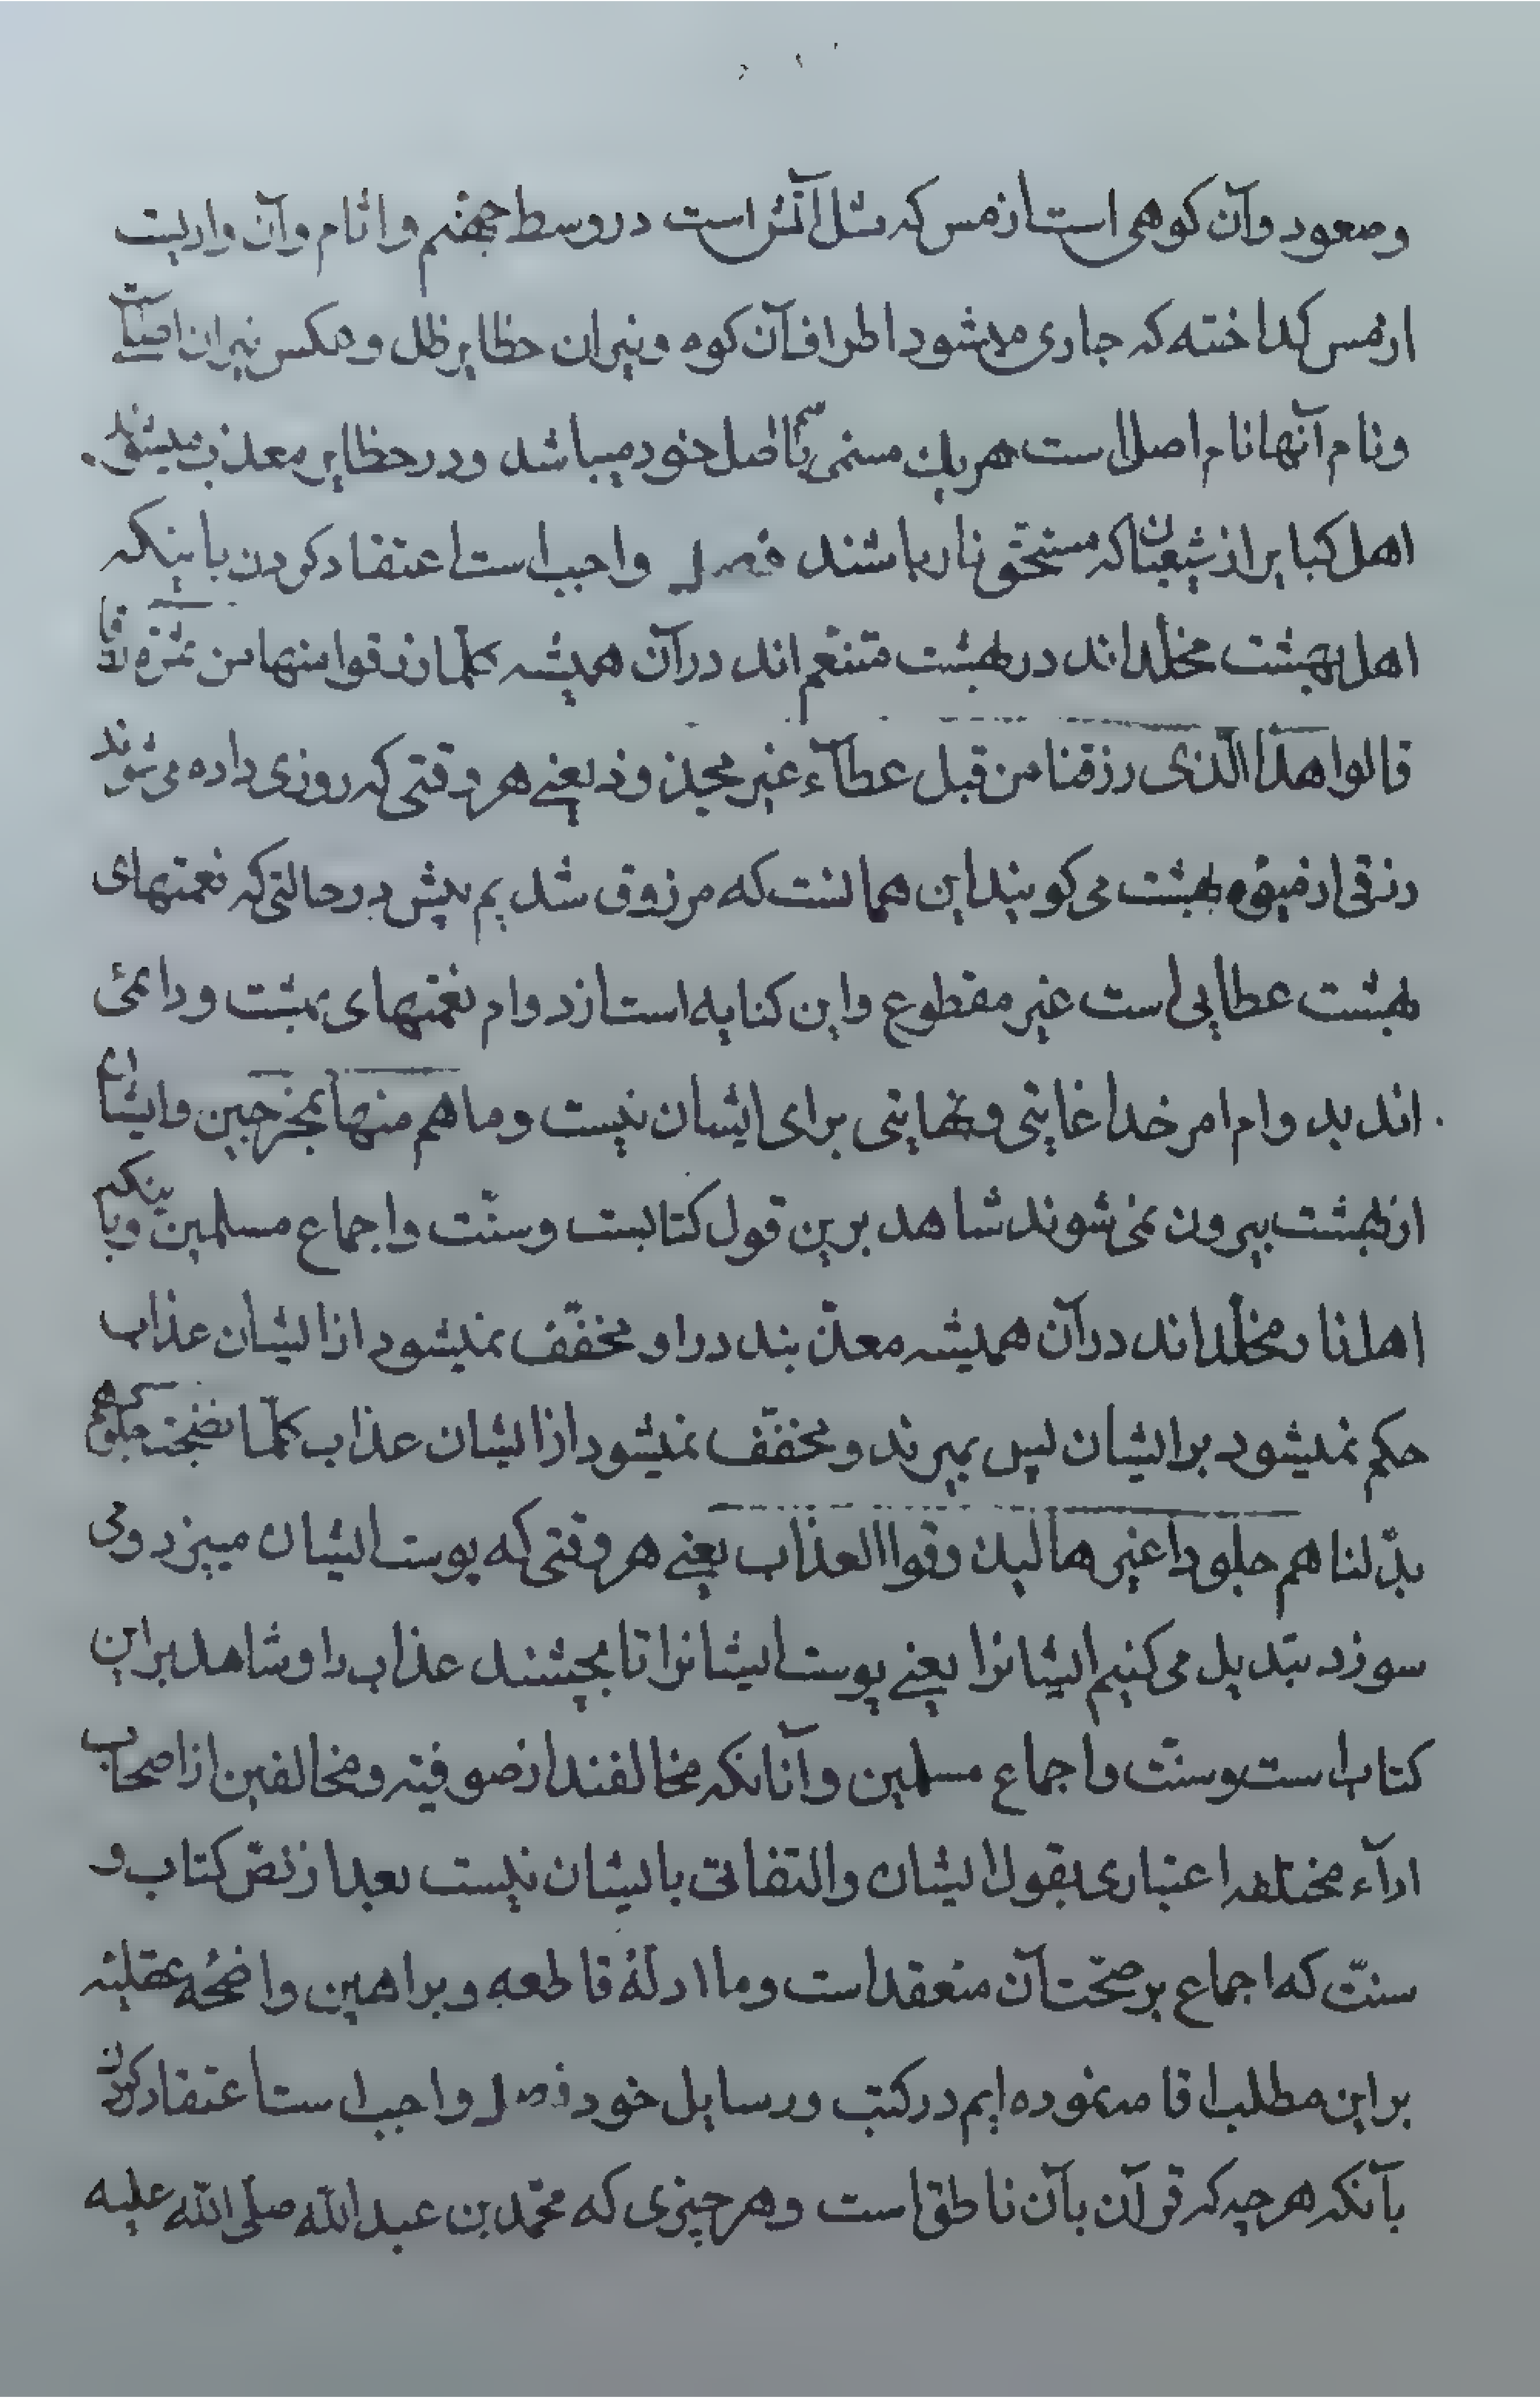 وصعود وآن کوهی است از مس که مثل آتش است در وسط جهنم و اثام وآن وادیست
از مس کداخته که جاری میشود اطراف آن کوه و نیران حظایر ظل و عکس نیران اصلست
ونام آنها نام اصل است هریك مسمی باسم اصل خود میباشد و در حظایر معذب میشوند
اهل کبایر از شیعیان که مستحق نار باشند فصل واجب است اعتقاد کردن باینکه
اهل بهشت مخلّد اند در بهشت متنعّم اند در آن همیشه کلّما رزقوا منها من ثمرة رزقا
قالوا هذا الّذی رزقنا من قبل عطآء غیر مجذوذ یعنے هر وقتی که روزی داده می شوند
رزقی از میوهٔ بهشت می کویند این همانست که مرزوق شدیم پیش در حالتی که نعمتهای
بهشت عطایی است غیر مقطوع و این کنایه است از دوام نعمتهای بهشت و دائمی
اند بدوام امر خدا غایتی و نهایتی برای ایشان نیست وما هم منها بمخرجین و ایشان
از بهشت بیرون نمی شوند شاهد برین قول کتابست وسنّت واجماع مسلمین و باینکه
اهل نار مخلّد اند در آن همیشه معذّبند در او مخفّف نمیشود از ایشان عذاب
حکم نمیشود بر ایشان پس بمیرند و مخفّف نمیشود از ایشان عذاب کلّما نضجت جلودهم
بدّلناهم جلودا غیرها لیذوقوا العذاب یعنے هر وقتی که پوست ایشان میپزد و می
سوزد تبدیل می کنیم ایشانرا یعنے پوست ایشانرا تا بچشند عذاب را و شاهد بر این
کتاب است وسنّت واجماع مسلمین و آنانکه مخالفند از صوفیّه و مخالفین از اصحاب
ارآء مختلفه اعتباری بقول ایشان والتفاتی بایشان نیست بعد از نصّ کتاب و
سنّت که اجماع بر صحّت آن منعقد است وما ادلّهٔ قاطعه و براهین واضحهٔ عقلیّه
بر این مطلب اقامه نموده ایم در کتب ورسایل خود فصل واجب است اعتقاد کردن
بآنکه هر چه که قرآن بآن ناطق است وهر چیزی که محمّد بن عبد اللّه صلّی اللّه علیه